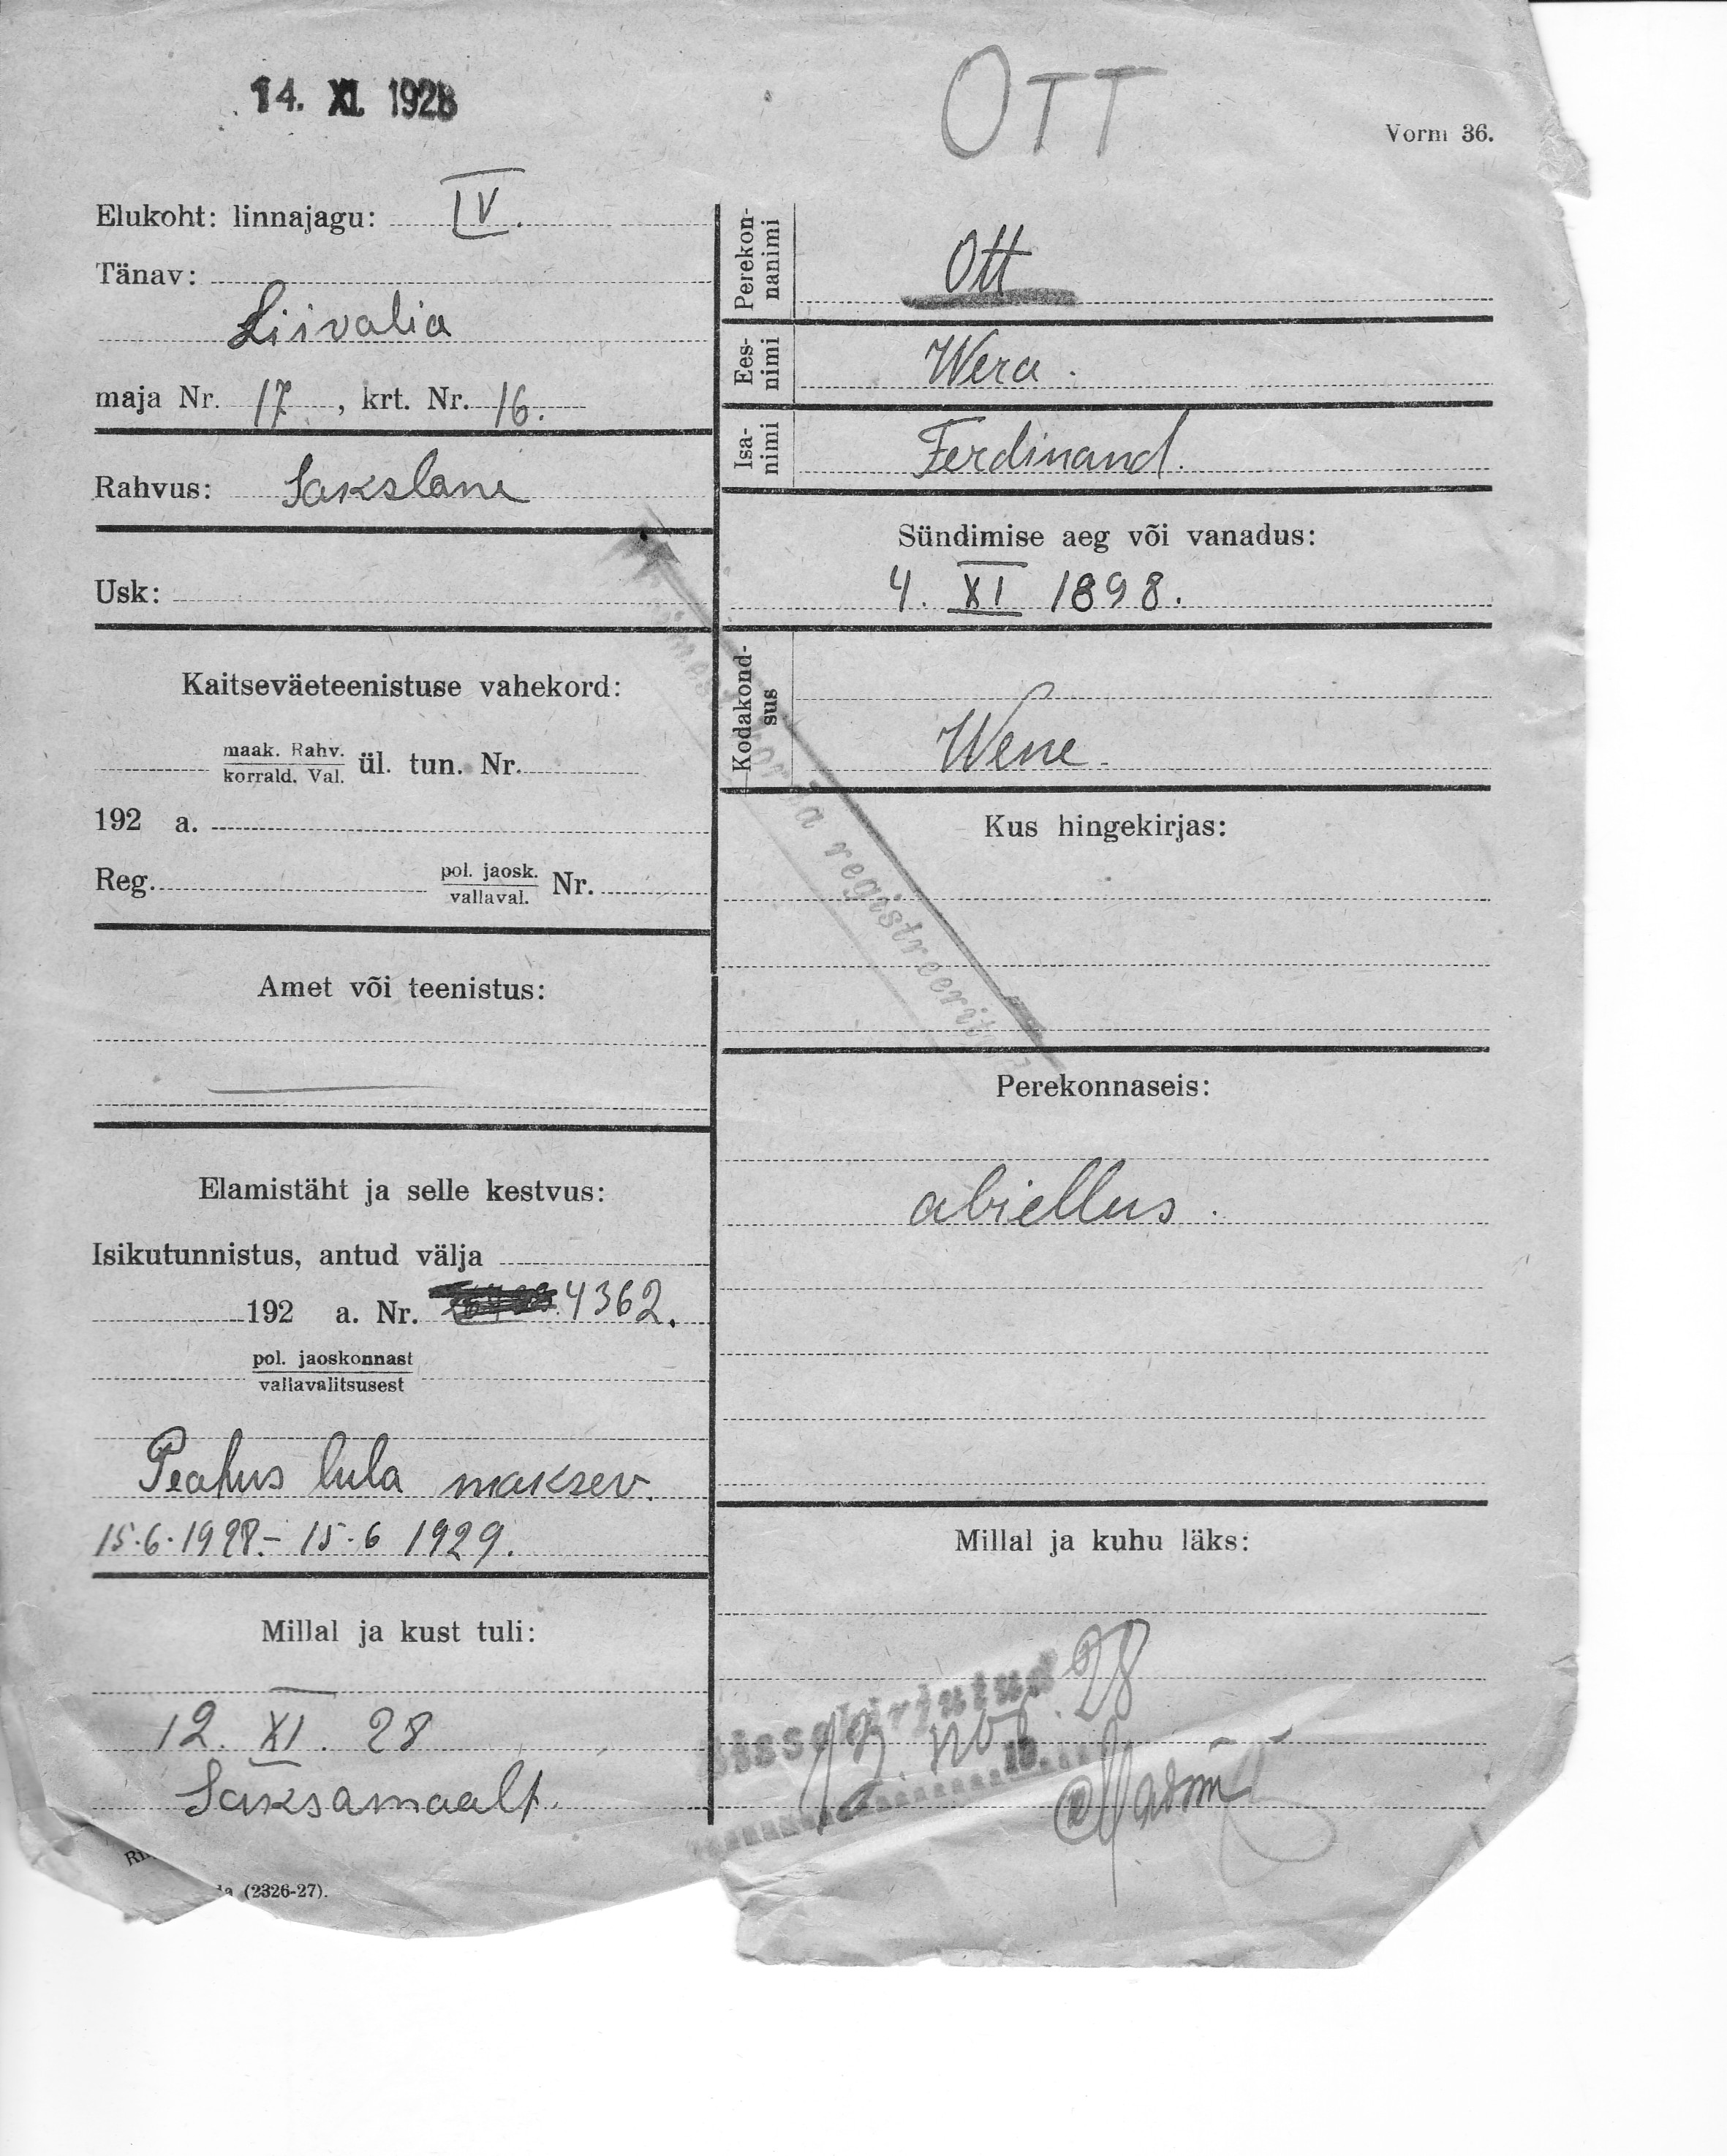 14. XI. 1928
OTT
Vorm 36.
Elukoht: linnajagu: IV.
Tänav:
Liivalia
maja Nr. 17, krt. Nr. 16.
Rahvus: Sakslane
Usk:
Kaitseväeteenistuse vahekord:
maak. Rahv.
korrald. Val. ül. tun. Nr.
192 a.
Reg. pol. jaosk.
vallaval. Nr.
Amet või teenistus:
Elamistäht ja selle kestvus:
Isikutunnistus, antud välja
192 a. Nr. 4362.
pol. jaoskonnast
vallavalitsusest
Peatus luba maksev.
15.6.1928.- 15.6 1929.
Millal ja kust tuli:
12. XI. 28
Saksamaalt.
(2326-27).
Perekon-
nanimi
Ott
Ees-
nimi
Wera.
Isa-
nimi
Ferdinand.
Sündimise aeg või vanadus:
4. XI 1898.
Kodakond-
sus
Wene.
registreeritud
Kus hingekirjas:
Perekonnaseis:
abiellus.
Millal ja kuhu läks:
Sissekirjutud
13. nov. 28
19